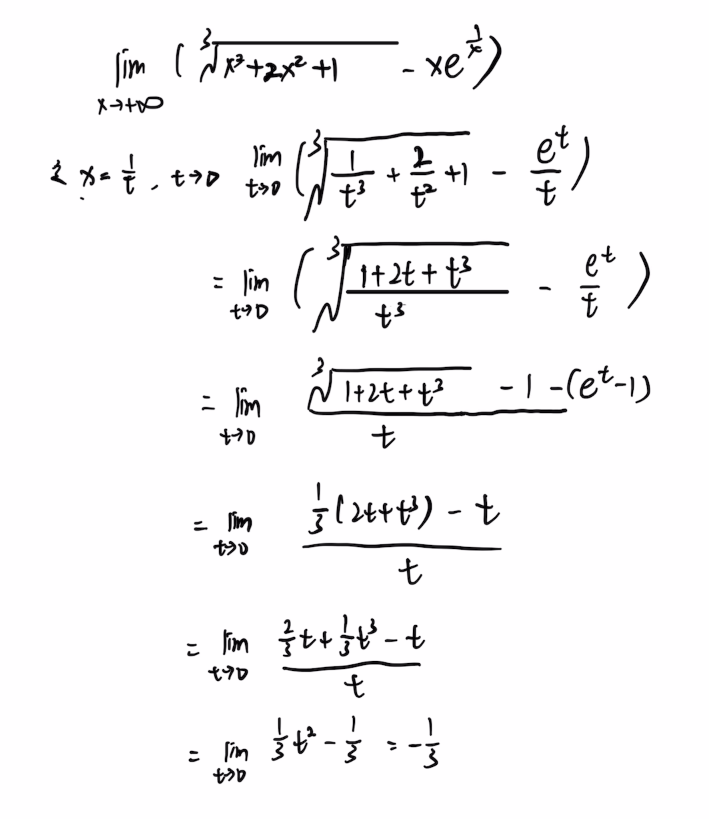 lim x→+∞ ( ∛(x³+2x²+1) - xe^(1/x) )
令 x=1/t, t→0 lim t→0 ( ∛(1/t³ + 2/t² +1) - e^t/t )
= lim t→0 ( ∛((1+2t+t³)/t³) - e^t/t )
= lim t→0 (∛(1+2t+t³) -1-(e^t-1))/t
= lim t→0 (1/3(2t+t³) - t)/t
= lim t→0 (2/3t+1/3t³-t)/t
= lim t→0 1/3t² - 1/3 = -1/3